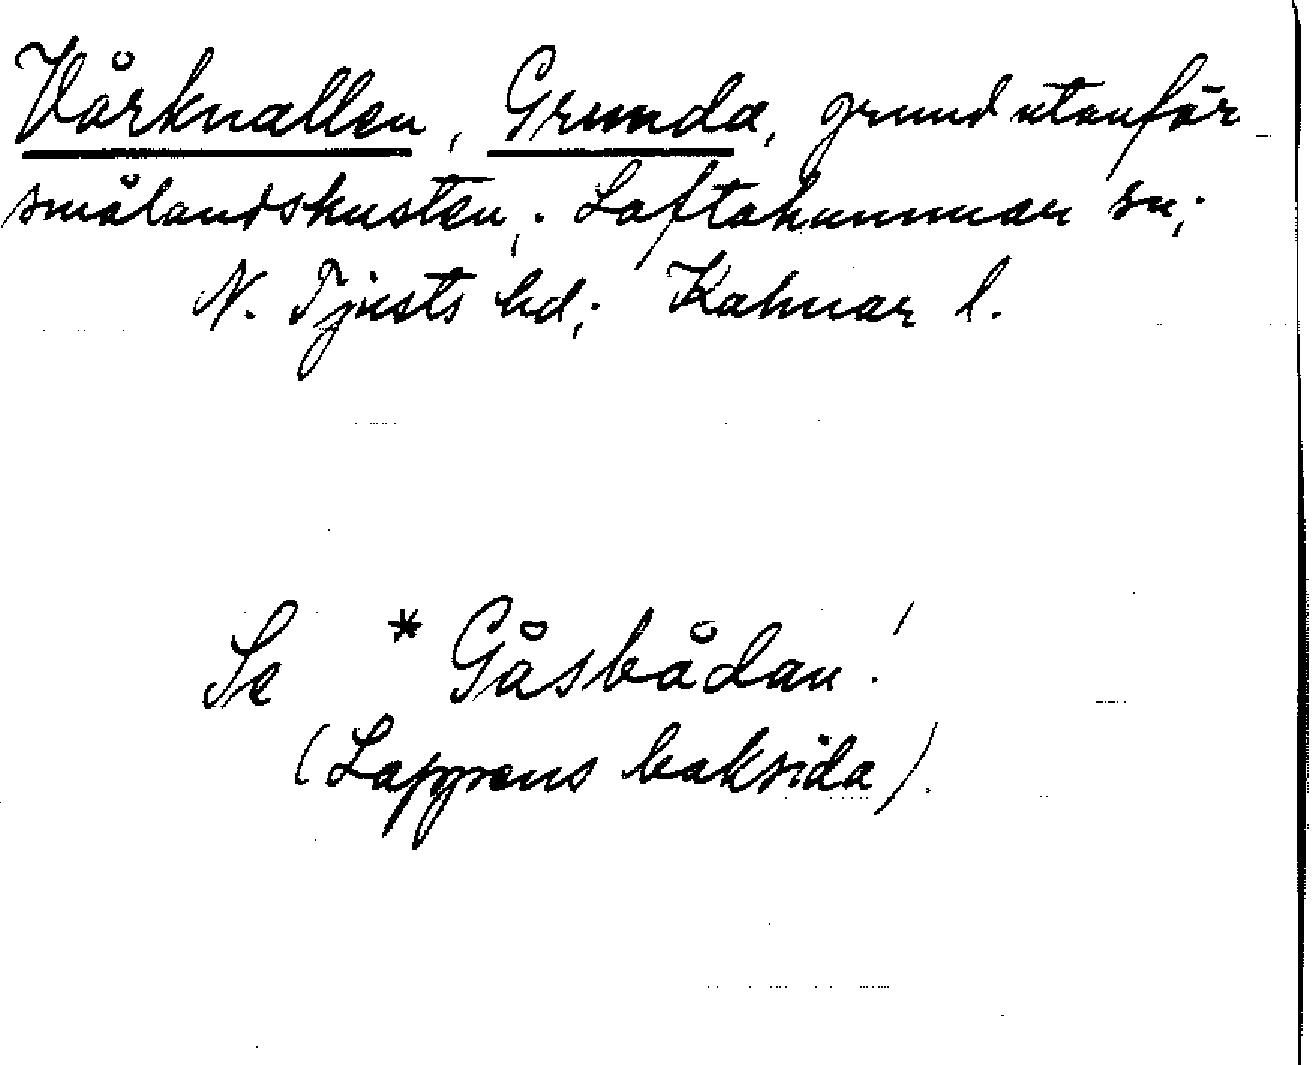 Vårknallen, Grunda, grund utanför
smålandskusten; Loftahammar sn;
N. Tjusts hd; Kalmar l.
Se * Gåsbådan!
(Lappens baksida).